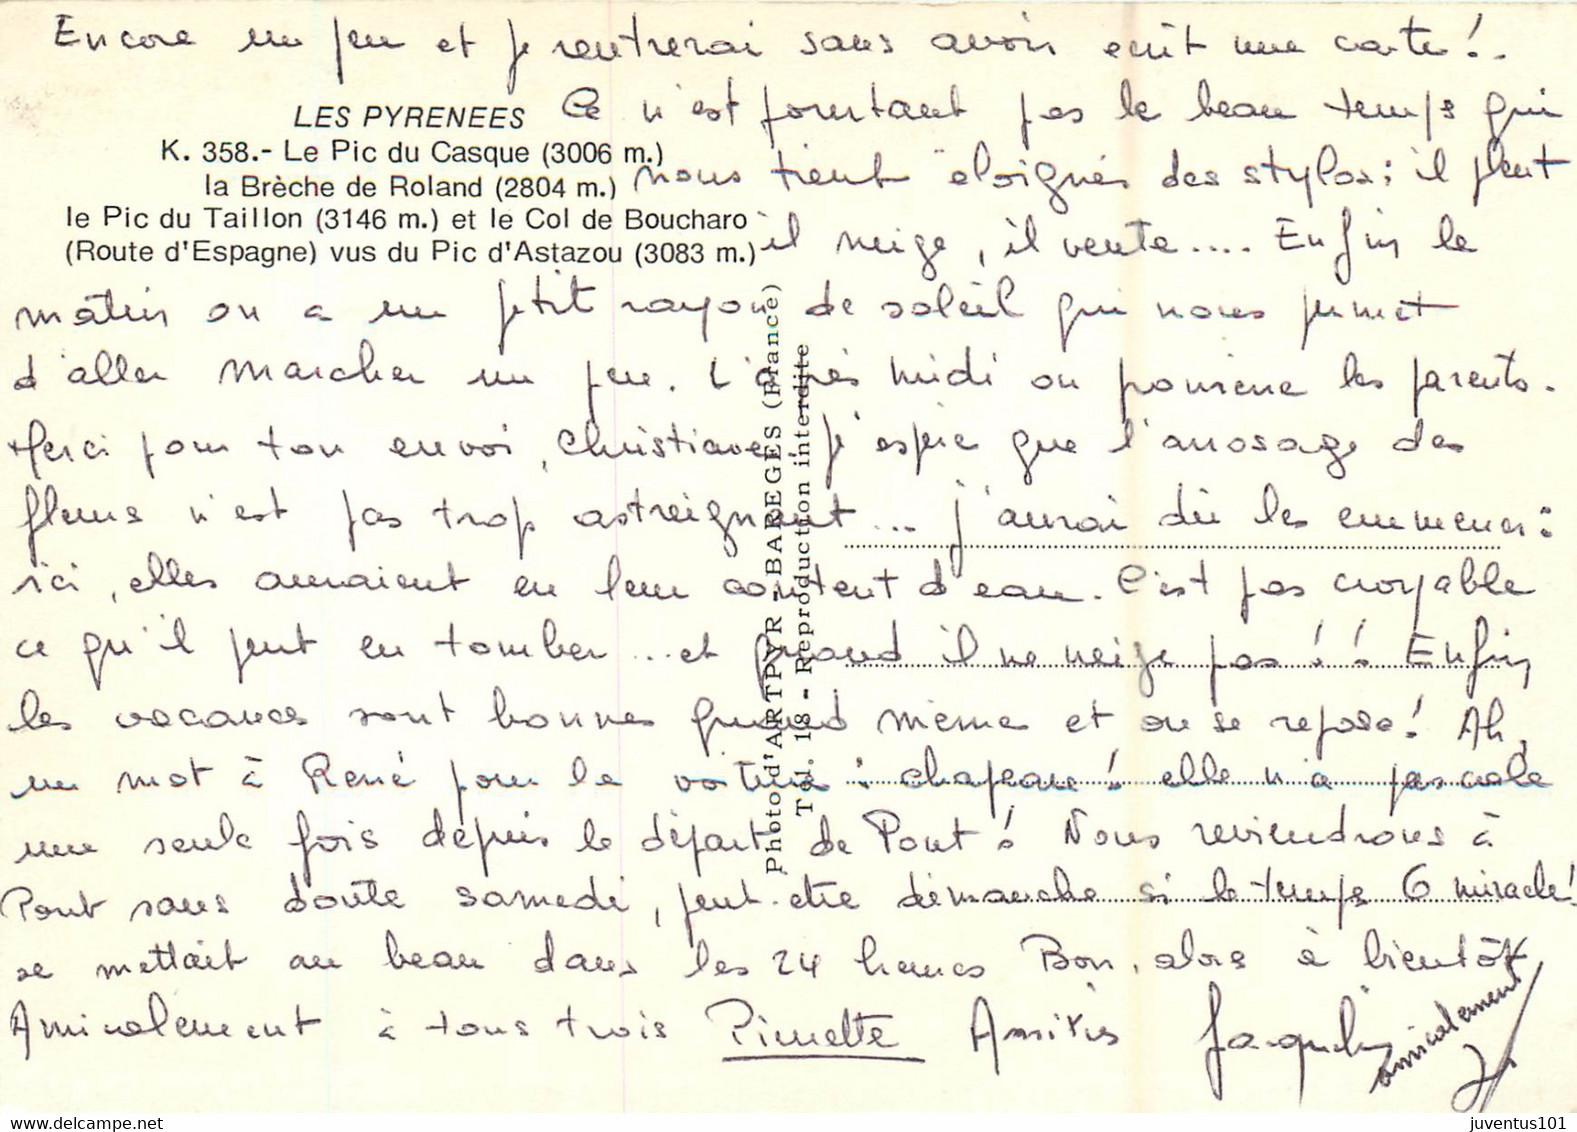 Encore un peu et je rentrerai sans avoir ecrit une carte!.
LES PYRENEES
K. 358.- Le Pic du Casque (3006 m.)
la Brèche de Roland (2804 m.)
le Pic du Taillon (3146 m.) et le Col de Boucharo
(Route d'Espagne) vus du Pic d'Astazou (3083 m.)
Ce n'est pourtant pas le beau temps qui
nous tient éloignés des stylos; il pleut
il neige, il vente.... Enfin le
matin on a un petit rayon de soleil qui nous permet
d'aller marcher un peu. L'après midi on pomène les parents.
Merci pour ton envoi, Christiane. J'espère que l'arrosage des
fleurs n'est pas trop astreignant... j'aurai dû les emmener:
ici, elles auraient eu leur content d'eau. C'est pas croyable
ce qu'il peut en tomber...et quand il ne neige pas!! Enfin
les vacances sont bonnes quand même et on se repose! Ah,
un mot à René pour la voiture: chapeau! elle n'a pas calé
une seule fois depuis le départ de Pont! Nous reviendrons à
Pont sans doute samedi, peut-etre dimanche si le temps ô miracle!
se mettait au beau dans les 24 heures Bon, alors à bientôt
Amicalement à tous trois Pimette Amitiés Jacqueline
amicalement
Photo d'ARTPYR - BAREGES (France)
Tél. 18 - Reproduction interdite
delcampe.net
juventus101